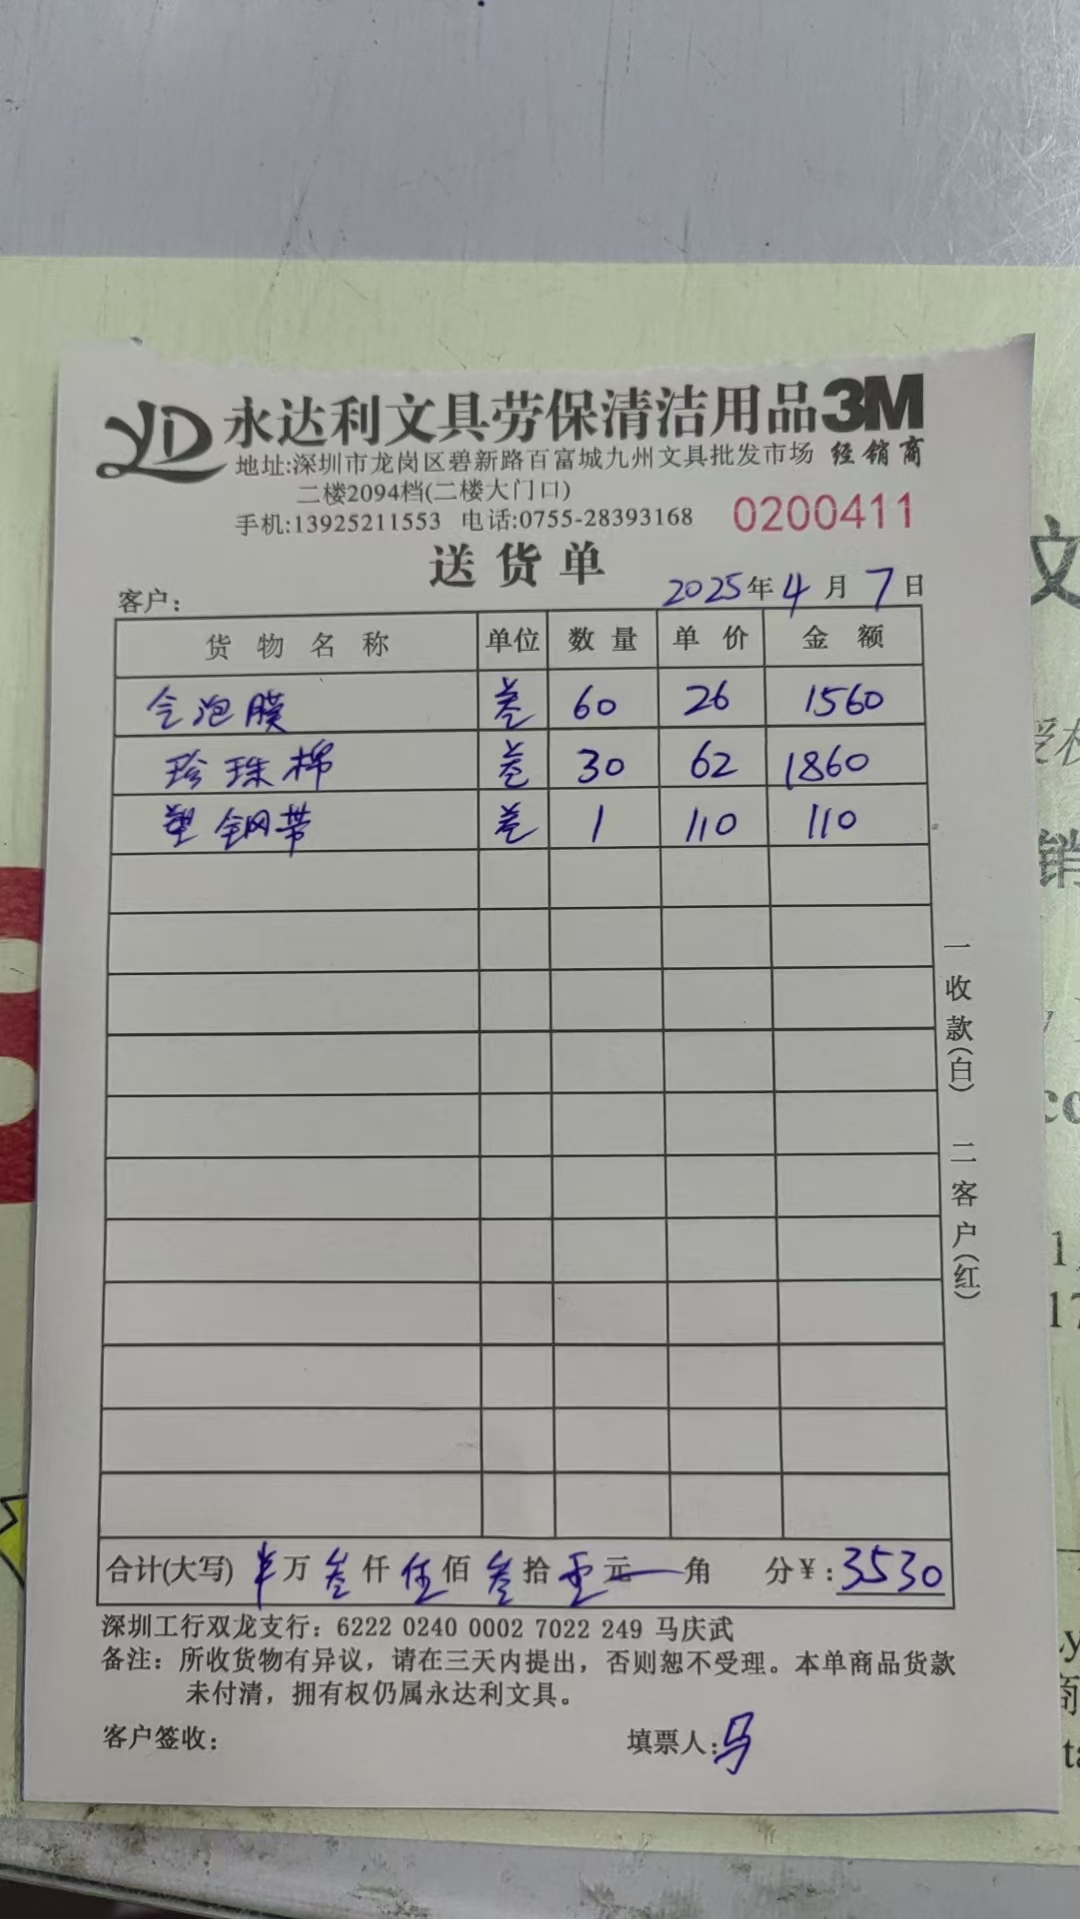 YD 永达利文具劳保清洁用品 3M
地址:深圳市龙岗区碧新路百富城九州文具批发市场 经销商
二楼2094档(二楼大门口)
手机:13925211553 电话:0755-28393168 0200411
送货单
客户: 2025年4月7日
货物名称 单位 数量 单价 金额
气泡膜 卷 60 26 1560
珍珠棉 卷 30 62 1860
塑钢带 卷 1 110 110
合计(大写) 万叁仟伍佰叁拾零元 角 分¥:3530
深圳工行双龙支行: 6222 0240 0002 7022 249 马庆武
备注: 所收货物有异议,请在三天内提出,否则恕不受理。本单商品货款
未付清,拥有权仍属永达利文具。
客户签收: 填票人:马
一收款(白) 二客户(红)
文
销